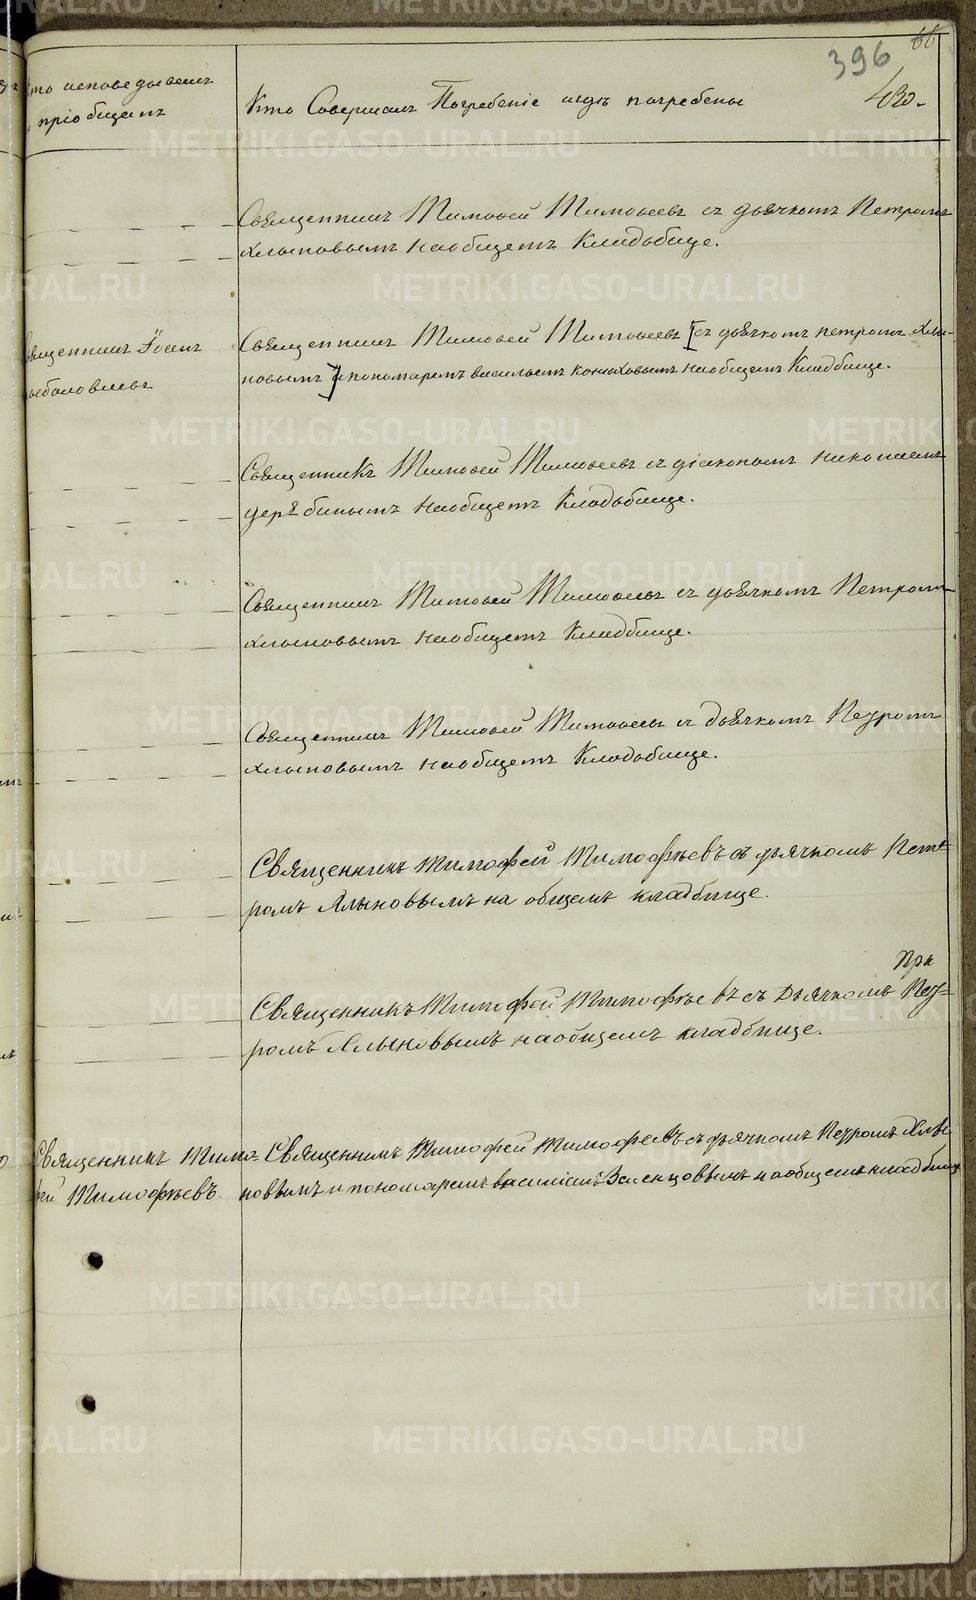 396
66
430.
Кто исповедывалъ
и пріобщалъ
Кто Совершалъ Погребеніе и гдѣ погребены
Священникъ Тимоѳей Тимоѳеевъ съ дьячкомъ Петромъ
Хлыновымъ на общемъ Кладьбище.
Священникъ
Священникъ Тимоѳей Тимоѳеевъ [съ дьячкомъ петромъ Хлы-
новымъ] и пономаремъ васильемъ конюховымъ на общемъ Кладбище.
Священникъ Тимоѳей Тимоѳеевъ съ діакономъ николаемъ
на общемъ Кладьбище.
Священникъ Тимоѳей Тимоѳеевъ съ дьячкомъ Петромъ
Хлыновымъ на общемъ Кладбище.
Священникъ Тимоѳей Тимоѳеевъ съ дьячкомъ Петромъ
Хлыновымъ на общемъ Кладьбище.
Священникъ Тимофей Тимофѣевъ съ дьячкомъ Пет-
ромъ Хлыновымъ на общемъ кладбище.
При
Священникъ Тимофей Тимофѣевъ съ Дьячкомъ Пет-
ромъ Хлыновымъ на общемъ кладбище.
Священникъ Тимо-
фей Тимофѣевъ
Священникъ Тимофей Тимофеевъ съ дьячкомъ Петромъ Хлы
новымъ и пономаремъ на общемъ кладбище
METRIKI.GASO-URAL.RU